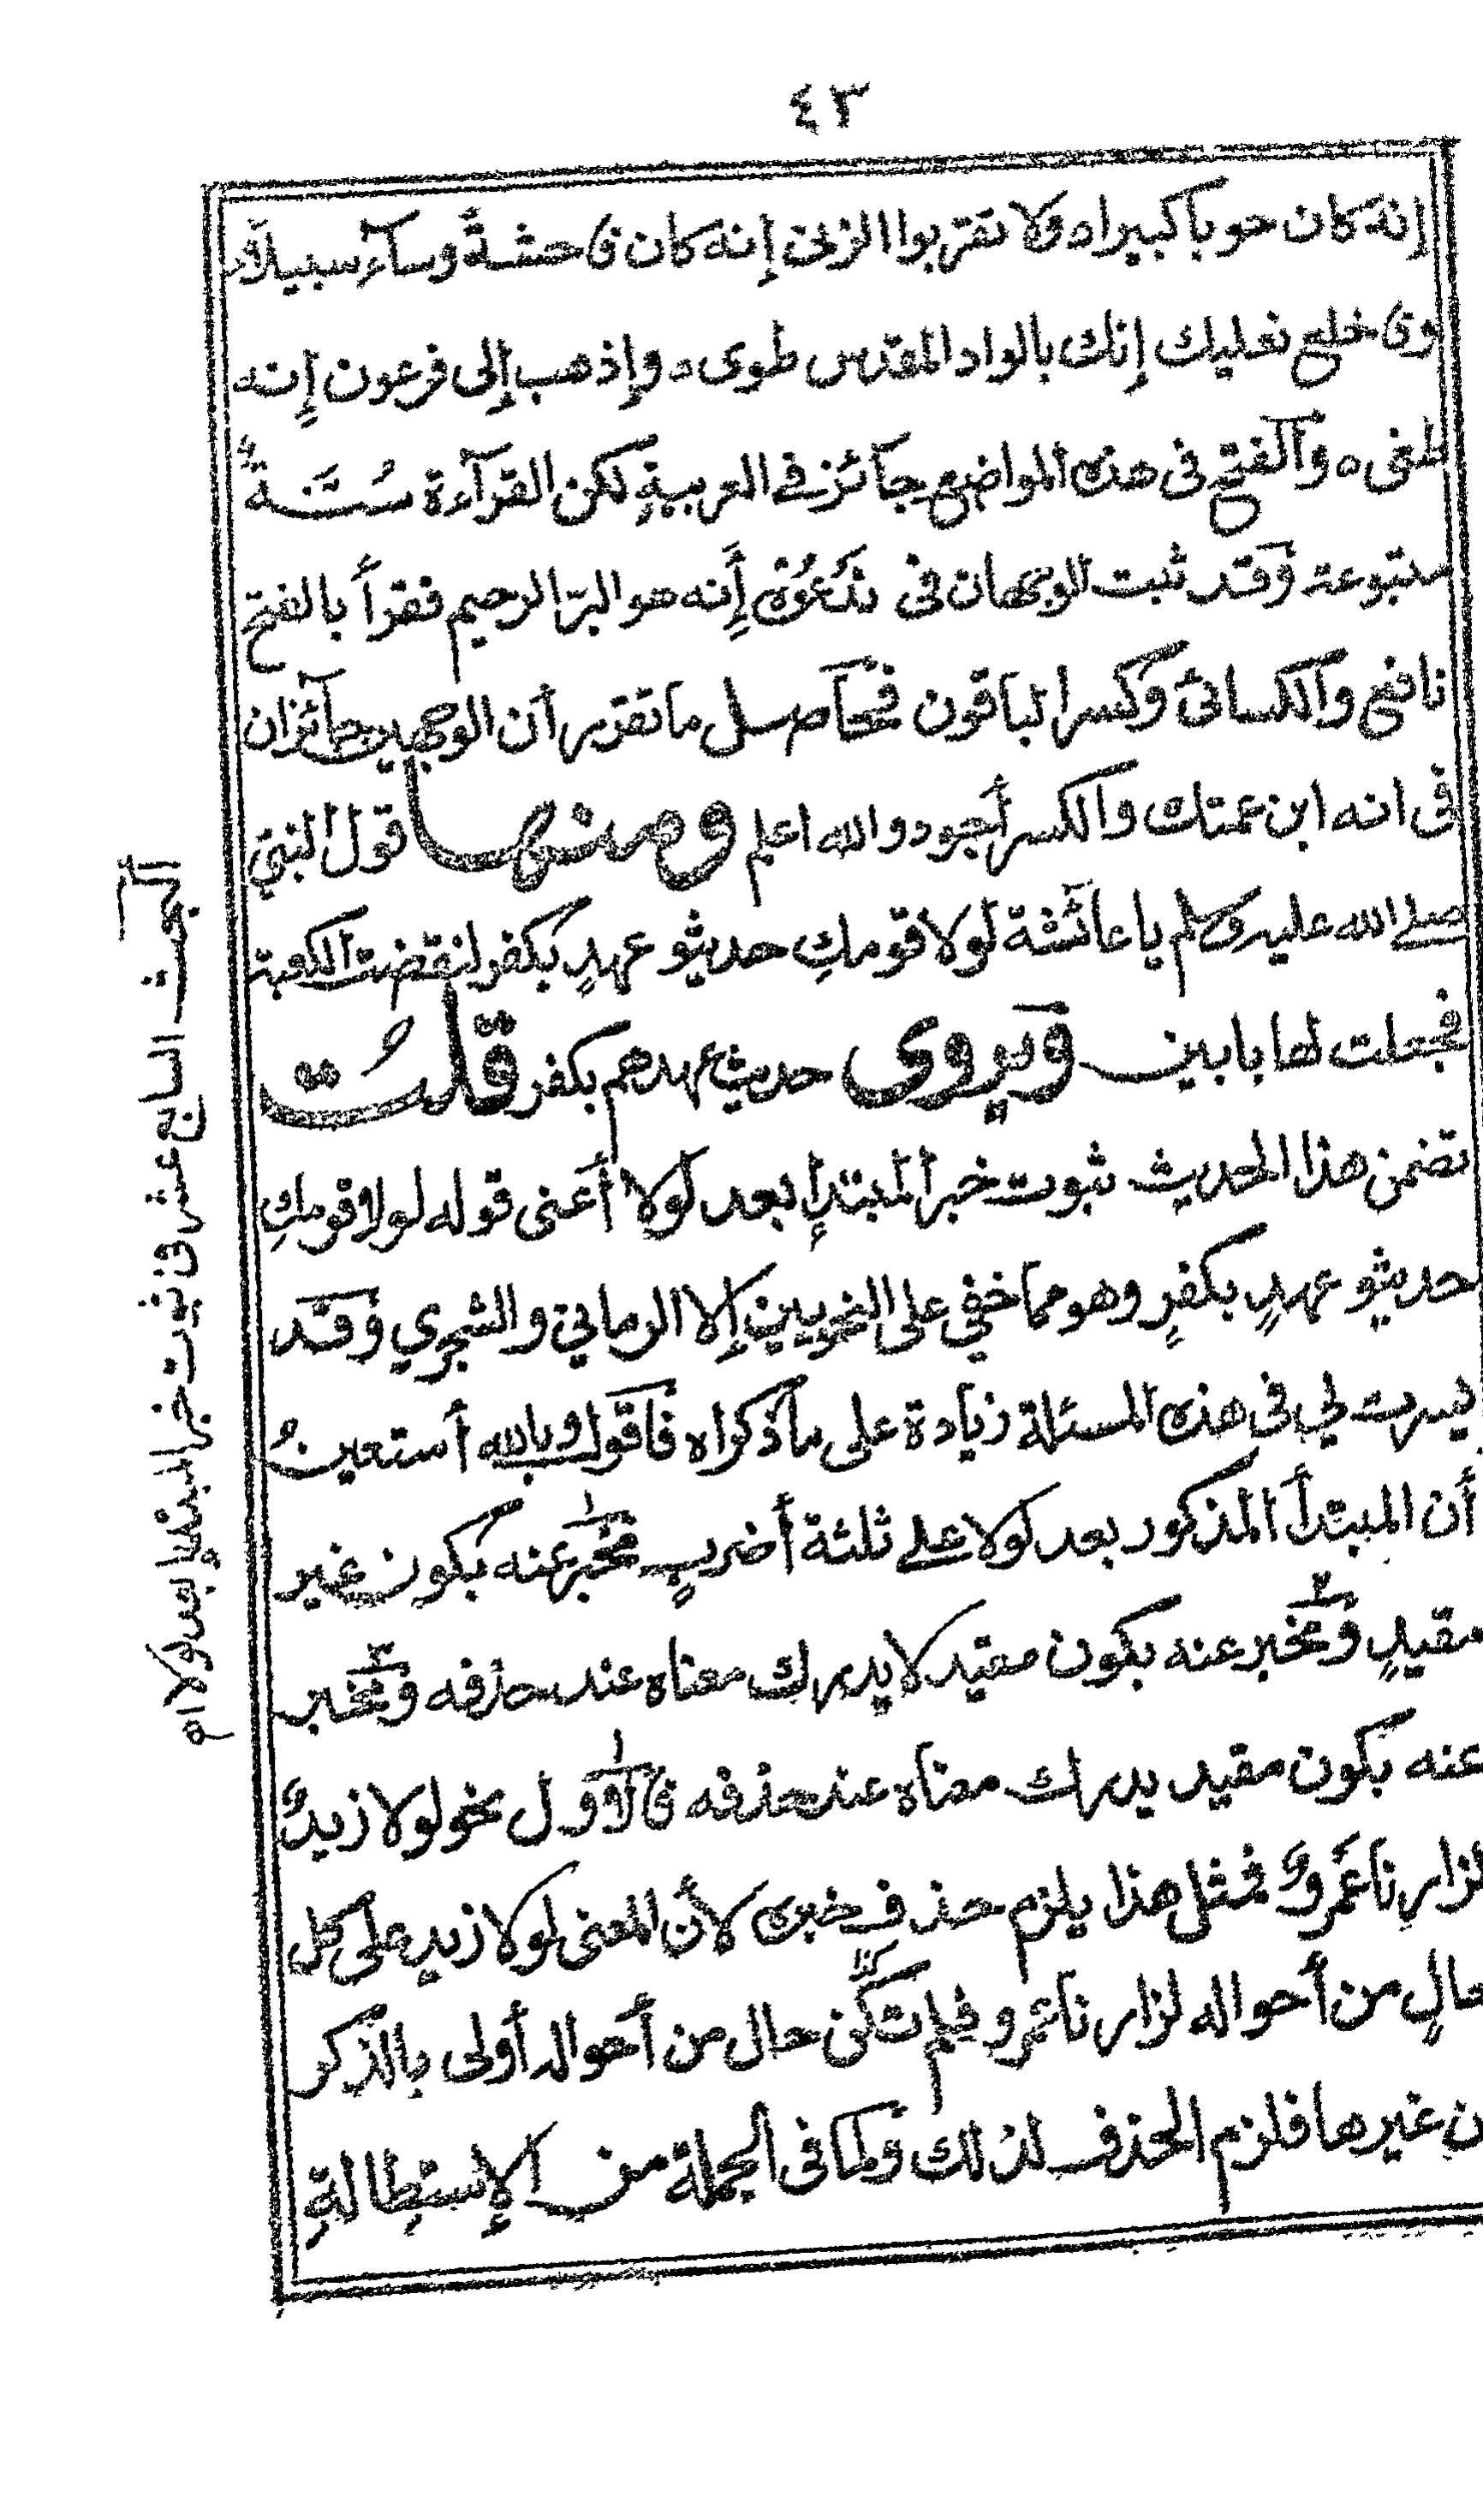 ٤٣
إنه كان حوبا كبيرا ه ولا تقربوا الزنى إنه كان فاحشةً وسآء سبيلا ه
وفاخلع نعليك إنك بالواد المقدس طوى ه وإذهب إلى فرعون إنه
طغى ه والفتح فى هذه المواضع جائز في العربيةِ لكن القرآءة سُنَّةٌ
متبوعة وقد ثبت الوجهان فى نَدْعُوْهُ أَِنه هو البرّ الرحيم فقرأ بالفتح
نافع والكسائى وكسر الباقون فحاصل ما تقرر أن الوجهين جائزان
فى انه ابن عمتك والكسر أجود والله اعلم ومنها قول النبيّ
صلى الله عليه وسلم يا عائشة لولا قومكِ حديثو عهدٍ بكفر لنقضت الكعبة
فجعلت لها بابين ويروى حديث عهدهم بكفر قلتُ
تضمن هذا الحديث ثبوت خبر المبتدإ بعد لولا أعنى قوله لولا قومكِ
حديثو عهدٍ بكفرٍ وهو مما خفي على النحويين إلا الرماني والشجري وقد
يسرت لي فى هذه المسئلة زيادة على ما ذكراه فأقول وبالله أستعينُ
أن المبتدأ المذكور بعد لولا على ثلثة أضربٍ مخبر عنه بكون غير
مقيدٍ ومخبر عنه بكون مقيد لا يدرك معناه عند حذفه ومخبر
عنه بكون مقيد يدرك معناه عند حذفه فالاول نحو لولا زيدٌ
لزارنا عَمروٌ فمثل هذا يلزم حذف خبره لأن المعنى لولا زيد على كل
حالٍ من أحواله لزارنا عمرو فلم تكن حال من أحواله أولى بالذكر
من غيرها فلزم الحذف لذلك ولما فى الجملة من الإستطالةِ
البحث السابع عشر فى ثبوت خبر المبتدإ بعد لولا ام